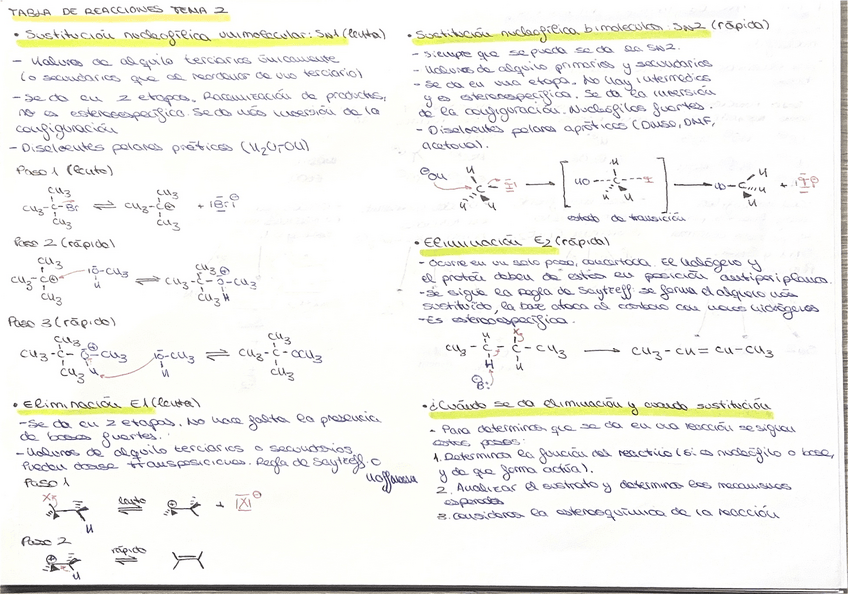 TABLA DE REACCIONES TEMA 2
• Sustitución nucleofílica unimolecular: SN1 (lenta)
- Haluros de alquilo terciarios únicamente
(o secundarios que de reordenar de uno terciario)
- Se da en 2 etapas. Racemización de productos,
no es estereoespecífica. Se da más inversión de la
configuración
- Disolventes polares próticos (H2O, -OH)
Paso 1 (lento)
CH3 CH3
CH3-C-Br ⇌ CH3-C⊕ + |Br|⊖
CH3 CH3
Paso 2 (rápido)
CH3 CH3
CH3-C⊕ |O-CH3 ⇌ CH3-C-O-CH3
CH3 H CH3 H
Paso 3 (rápido)
CH3 CH3
CH3-C-O-CH3 |O-CH3 ⇌ CH3-C-OCH3
CH3 H H CH3
• Eliminación E1 (lenta)
- Se da en 2 etapas. No hace falta la presencia
de bases fuertes.
- Haluros de alquilo terciarios o secundarios
Pueden darse transposiciones. Regla de Saytzeff o
Hoffmann
Paso 1
X lento + |X|⊖
H
Paso 2
rápido
H
• Sustitución nucleofílica bimolecular: SN2 (rápida)
- Siempre que se pueda se da la SN2.
- Haluros de alquilo primarios y secundarios
- Se da en una etapa. No hay intermedios
y es estereoespecífica. Se da la inversión
de la configuración. Nucleófilos fuertes.
- Disolventes polares apróticos (DMSO, DMF,
acetona).
H
⊖OH C - I → HO---C---I → HO-C + |I|⊖
H H H
estado de transición
• Eliminación E2 (rápida)
- Ocurre en un solo paso, concertada. El halógeno y
el protón deben de estar en posición antiperiplanar.
- Se sigue la regla de Saytzeff: se forma el alqueno más
sustituido, la base ataca al carbono con menos hidrógenos
- Es estereoespecífica.
H X
CH3-C-C-CH3 → CH3-CH=CH-CH3
H H
⊖B:
• ¿Cuándo se da eliminación y cuando sustitución
- Para determinar que se da en una reacción se siguen
estos pasos:
1. Determinar la función del reactivo (si es nucleófilo o base,
y de que forma actúa).
2. Analizar el sustrato y determinar los mecanismos
esperados
3. Considerar la estereoquímica de la reacción